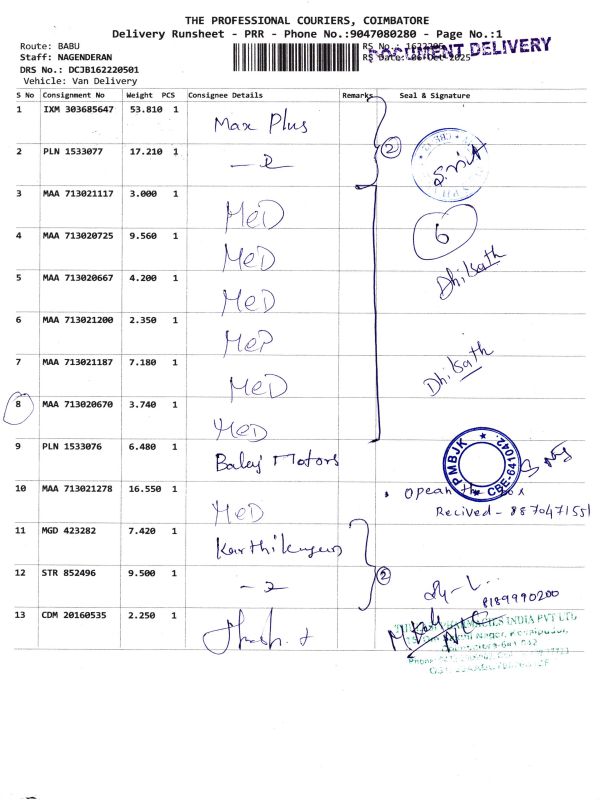 THE PROFESSIONAL COURIERS, COIMBATORE
Delivery Runsheet - PRR - Phone No.:9047080280 - Page No.:1
Route: BABU
RS No.:
DOCUMENT DELIVERY
Staff: NAGENDERAN
RS Date: 06-Dec-2025
DRS No.: DCJB162220501
Vehicle: Van Delivery
S No Consignment No Weight PCS Consignee Details Remarks Seal & Signature
1 IXM 303685647 53.810 1 Max Plus
2 PLN 1533077 17.210 1 2
3 MAA 713021117 3.000 1 MeD
6
4 MAA 713020725 9.560 1 MeD
Dhilsath
5 MAA 713020667 4.200 1 MeD
6 MAA 713021200 2.350 1 MeD
7 MAA 713021187 7.180 1 MeD
Dhilsath
8 MAA 713020670 3.740 1 MeD
9 PLN 1533076 6.480 1 Balaj Motors
PMBJK CBE-641042
10 MAA 713021278 16.550 1 MeD
Recived - 8870471551
11 MGD 423282 7.420 1
12 STR 852496 9.500 1 - 2 2
8189990200
13 CDM 20160535 2.250 1
INDIA PVT LTD